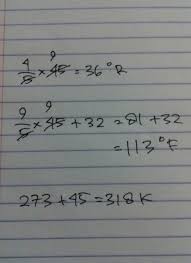 4/5 × 45 9 = 36°R
9/5 × 45 9 + 32 = 81 + 32
= 113°F
273 + 45 = 318 K